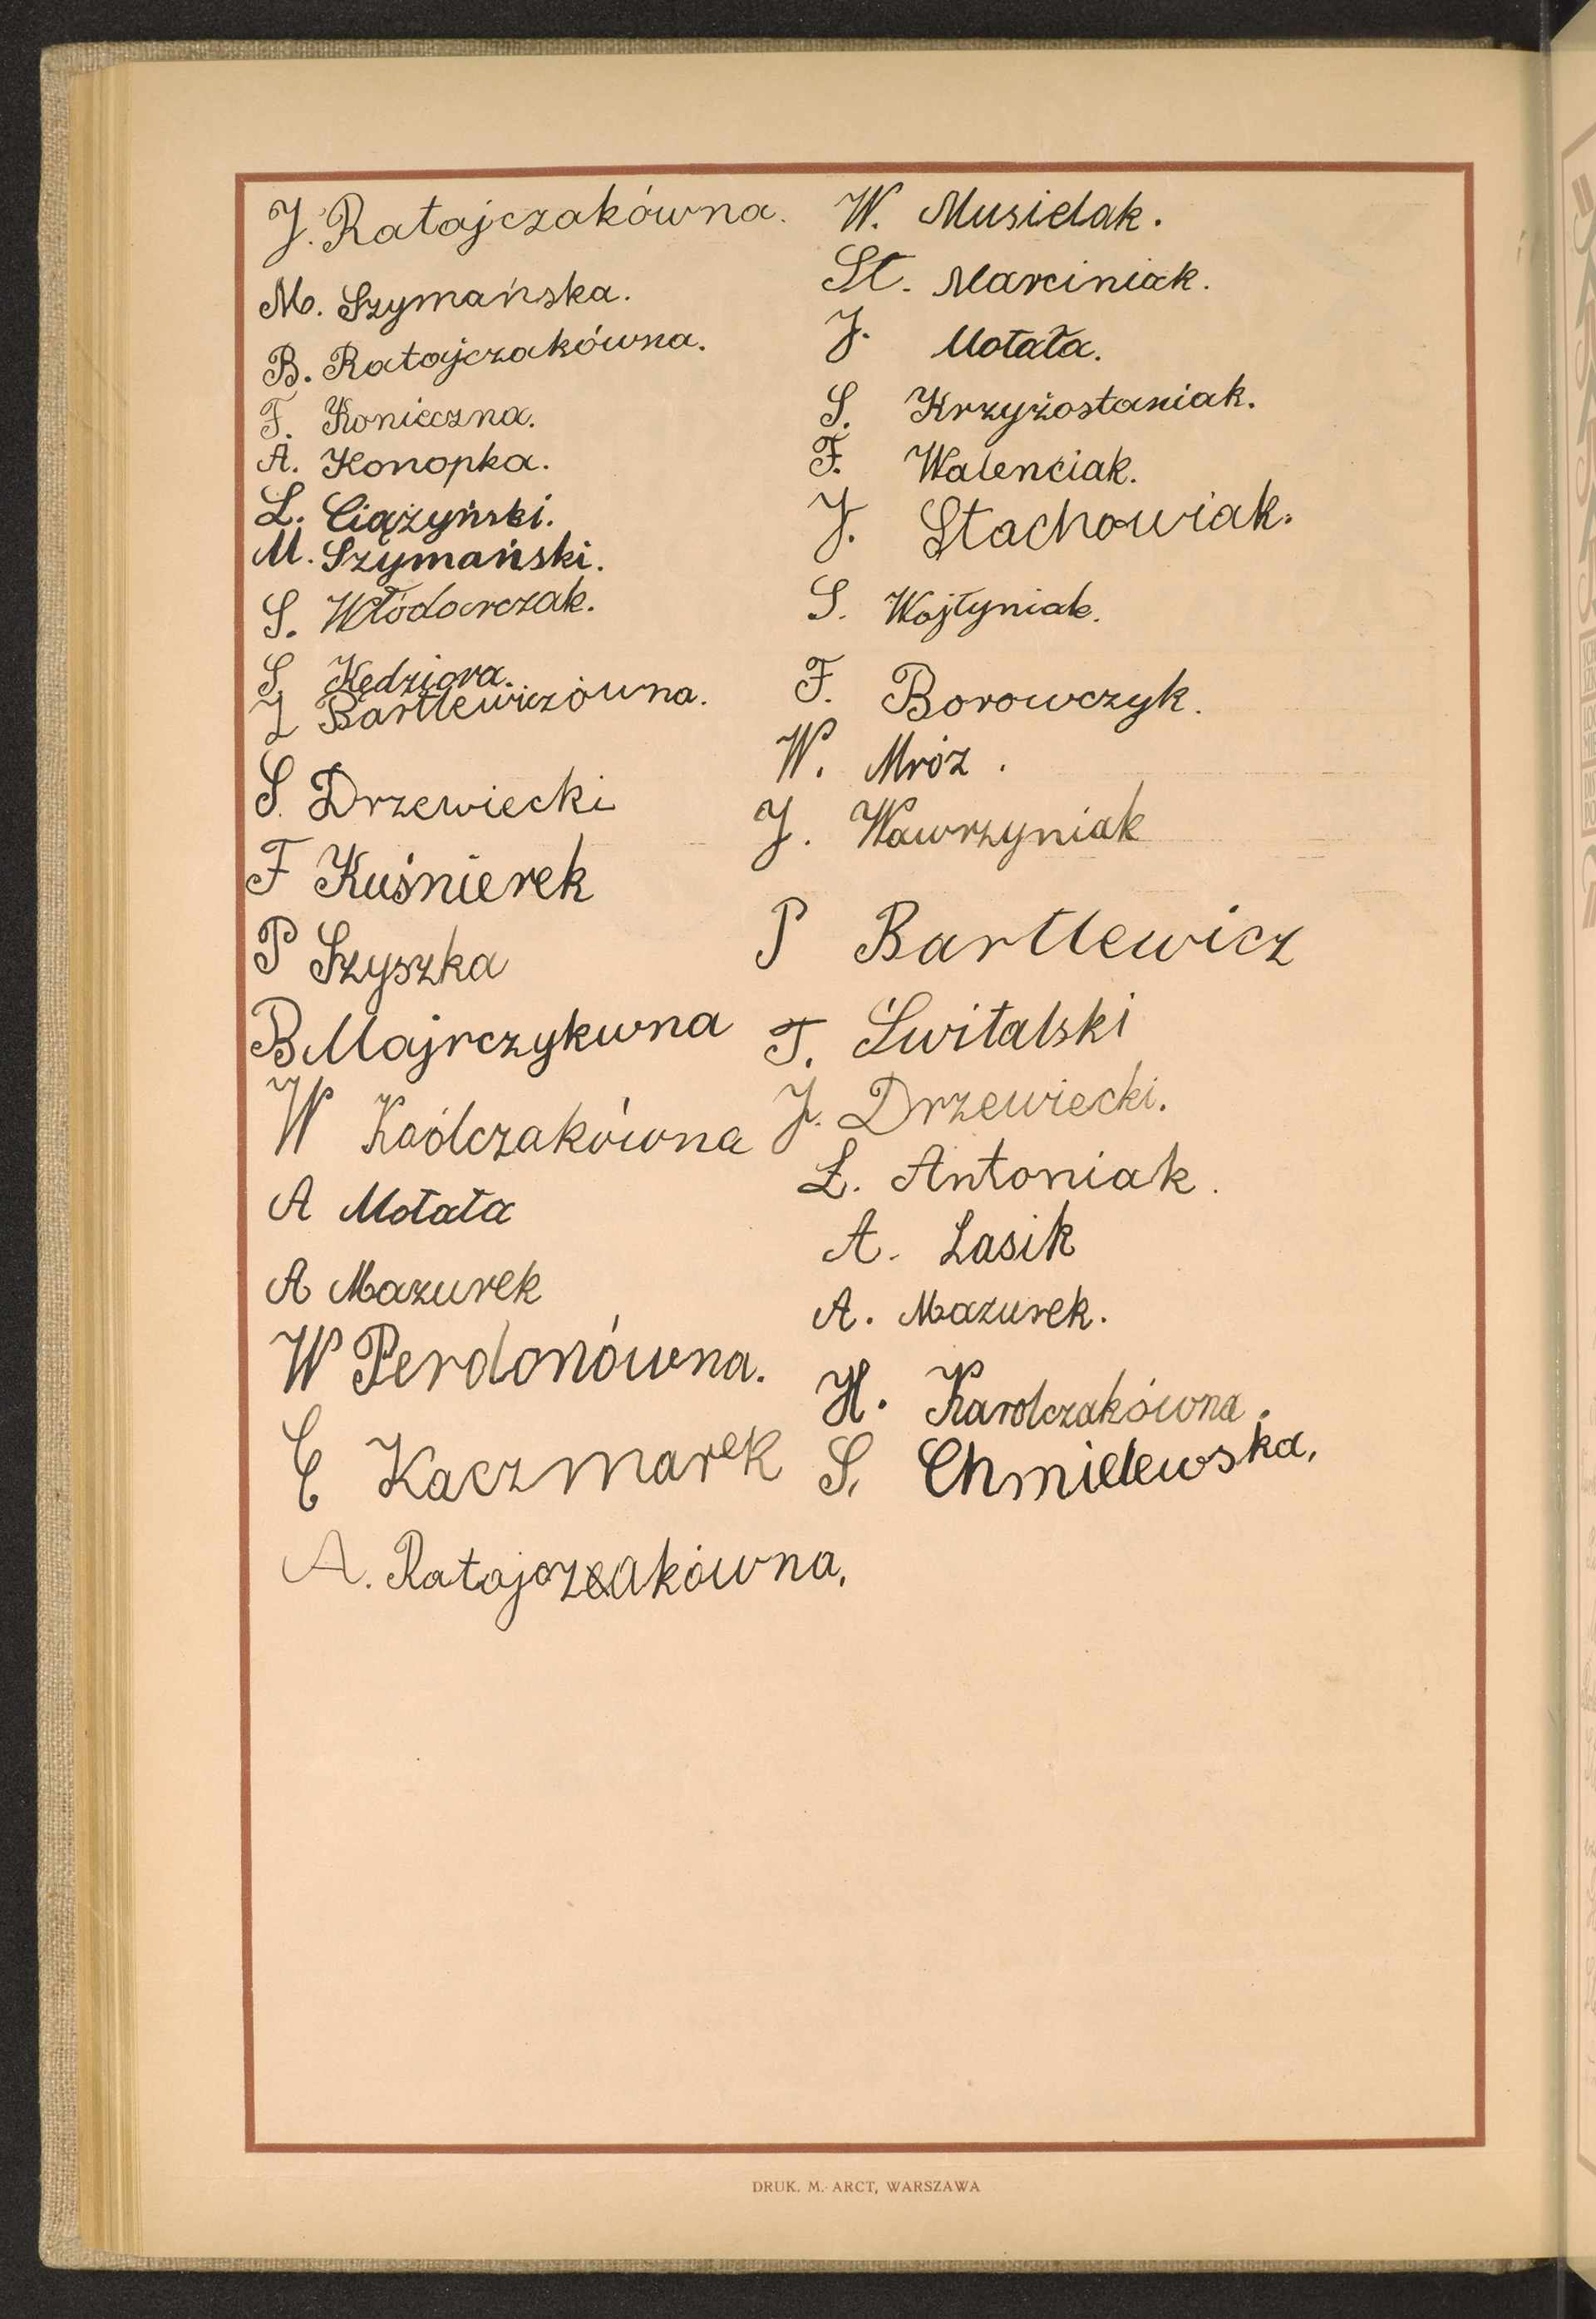 J. Ratajczakówna.
M. Szymańska.
B. Ratajczakówna.
F. Konieczna.
A. Konopka.
L. Ciążyński.
M. Szymański.
S. Włódarczak.
S. Kędziora.
J Bartlewiczówna.
S. Drzewiecki
F Kuśnierek
P Szyszka
B Majrczykwna
W Kaólczakówna
A Motała
A Mazurek
W Perdonówna.
C Kaczmarek
A. Ratajczakówna.
W. Musielak.
St. Marciniak.
J. Motała.
S. Krzyżostaniak.
F. Walenciak.
J. Stachowiak.
S. Wojtyniak.
F. Borowczyk.
W. Mróz.
J. Wawrzyniak
P Bartlewicz
T. Świtalski
J. Drzewiecki.
Ł. Antoniak.
A. Lasik
A. Mazurek.
H. Karolczakówna.
S. Chmielewska.
DRUK. M. ARCT, WARSZAWA